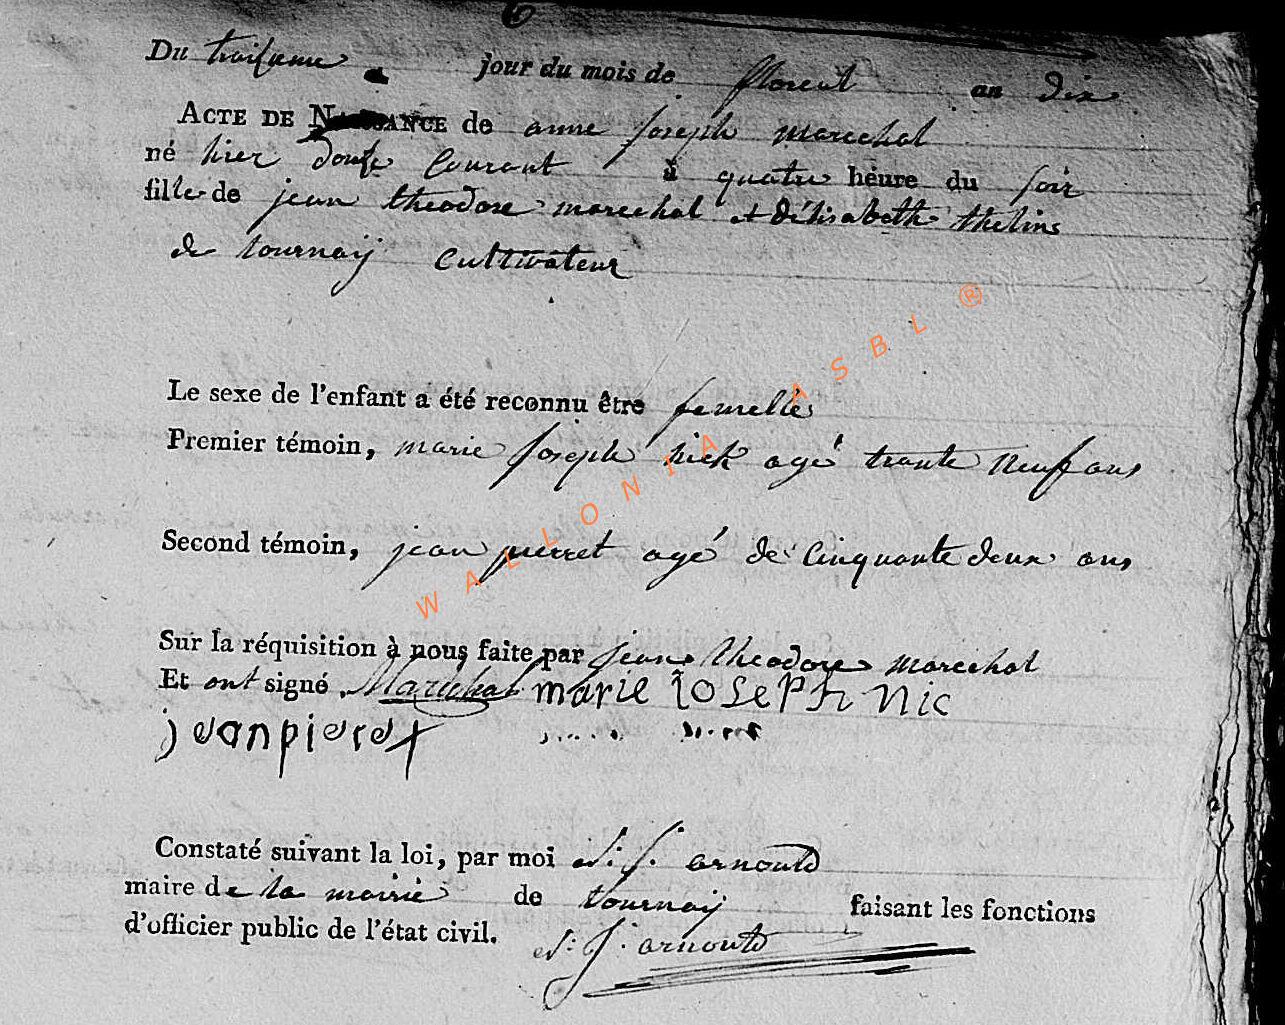 Du traisieme jour du mois de floreal an dix
ACTE DE NAISSANCE de anne joseph marechal
né hier douse Courant à quatre heure du soir
fille de jean theodore marechal et délisabeth thelins
de tournaÿ cultivateur
Le sexe de l'enfant a été reconnu être femelle
Premier témoin, marie joseph nick agé trante neuf ans
Second témoin, jean pierret agé de Cinquante deux ans
Sur la réquisition à nous faite par jean theodore marechal
Et ont signé Maréchal marie Joseph nic
jeanpieret
Constaté suivant la loi, par moi J. arnould
maire de la mairie de tournaÿ faisant les fonctions
d'officier public de l'état civil. J. arnould
WALLONIA ASBL ®